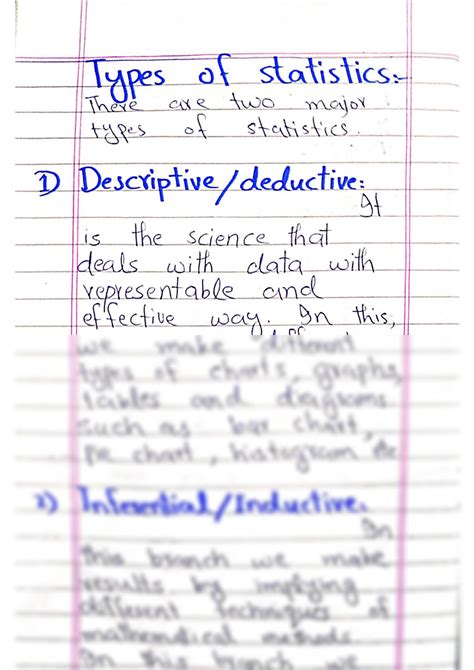 Types of statistics:-
There are two major
types of statistics.
1) Descriptive/deductive:
It
is the science that
deals with data with
representable and
effective way. In this,
we make different
types of charts, graphs,
tables and diagrams
such as bar chart,
pie chart, histogram etc
2) Inferential/Inductive:
In
this branch we make
results by implying
different techniques of
mathematical methods.
In this branch we